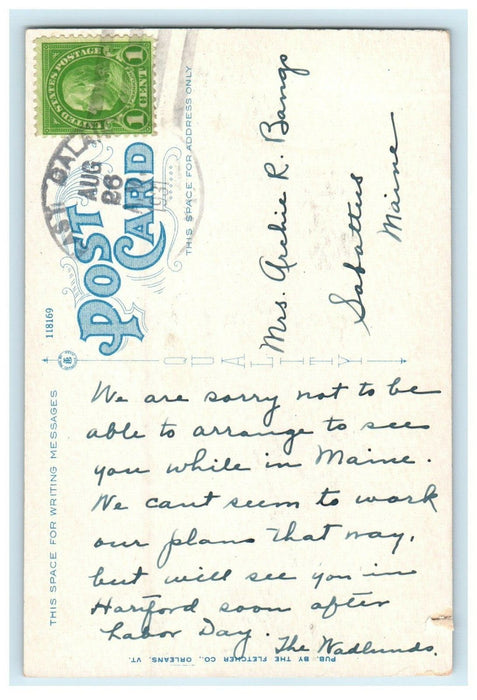 UNITED STATES POSTAGE
1 CENT 1
AUG
26
1931
POST
CARD
THIS SPACE FOR ADDRESS ONLY
Mrs. Archie R. Bangs
Sabattus
Maine
118169
QUALITY
THIS SPACE FOR WRITING MESSAGES
We are sorry not to be
able to arrange to see
you while in Maine.
We cant seem to work
our plans that way,
but will see you in
Hartford soon after
Labor Day.
The Wadlunds.
PUB. BY THE FLETCHER CO., ORLEANS, VT.